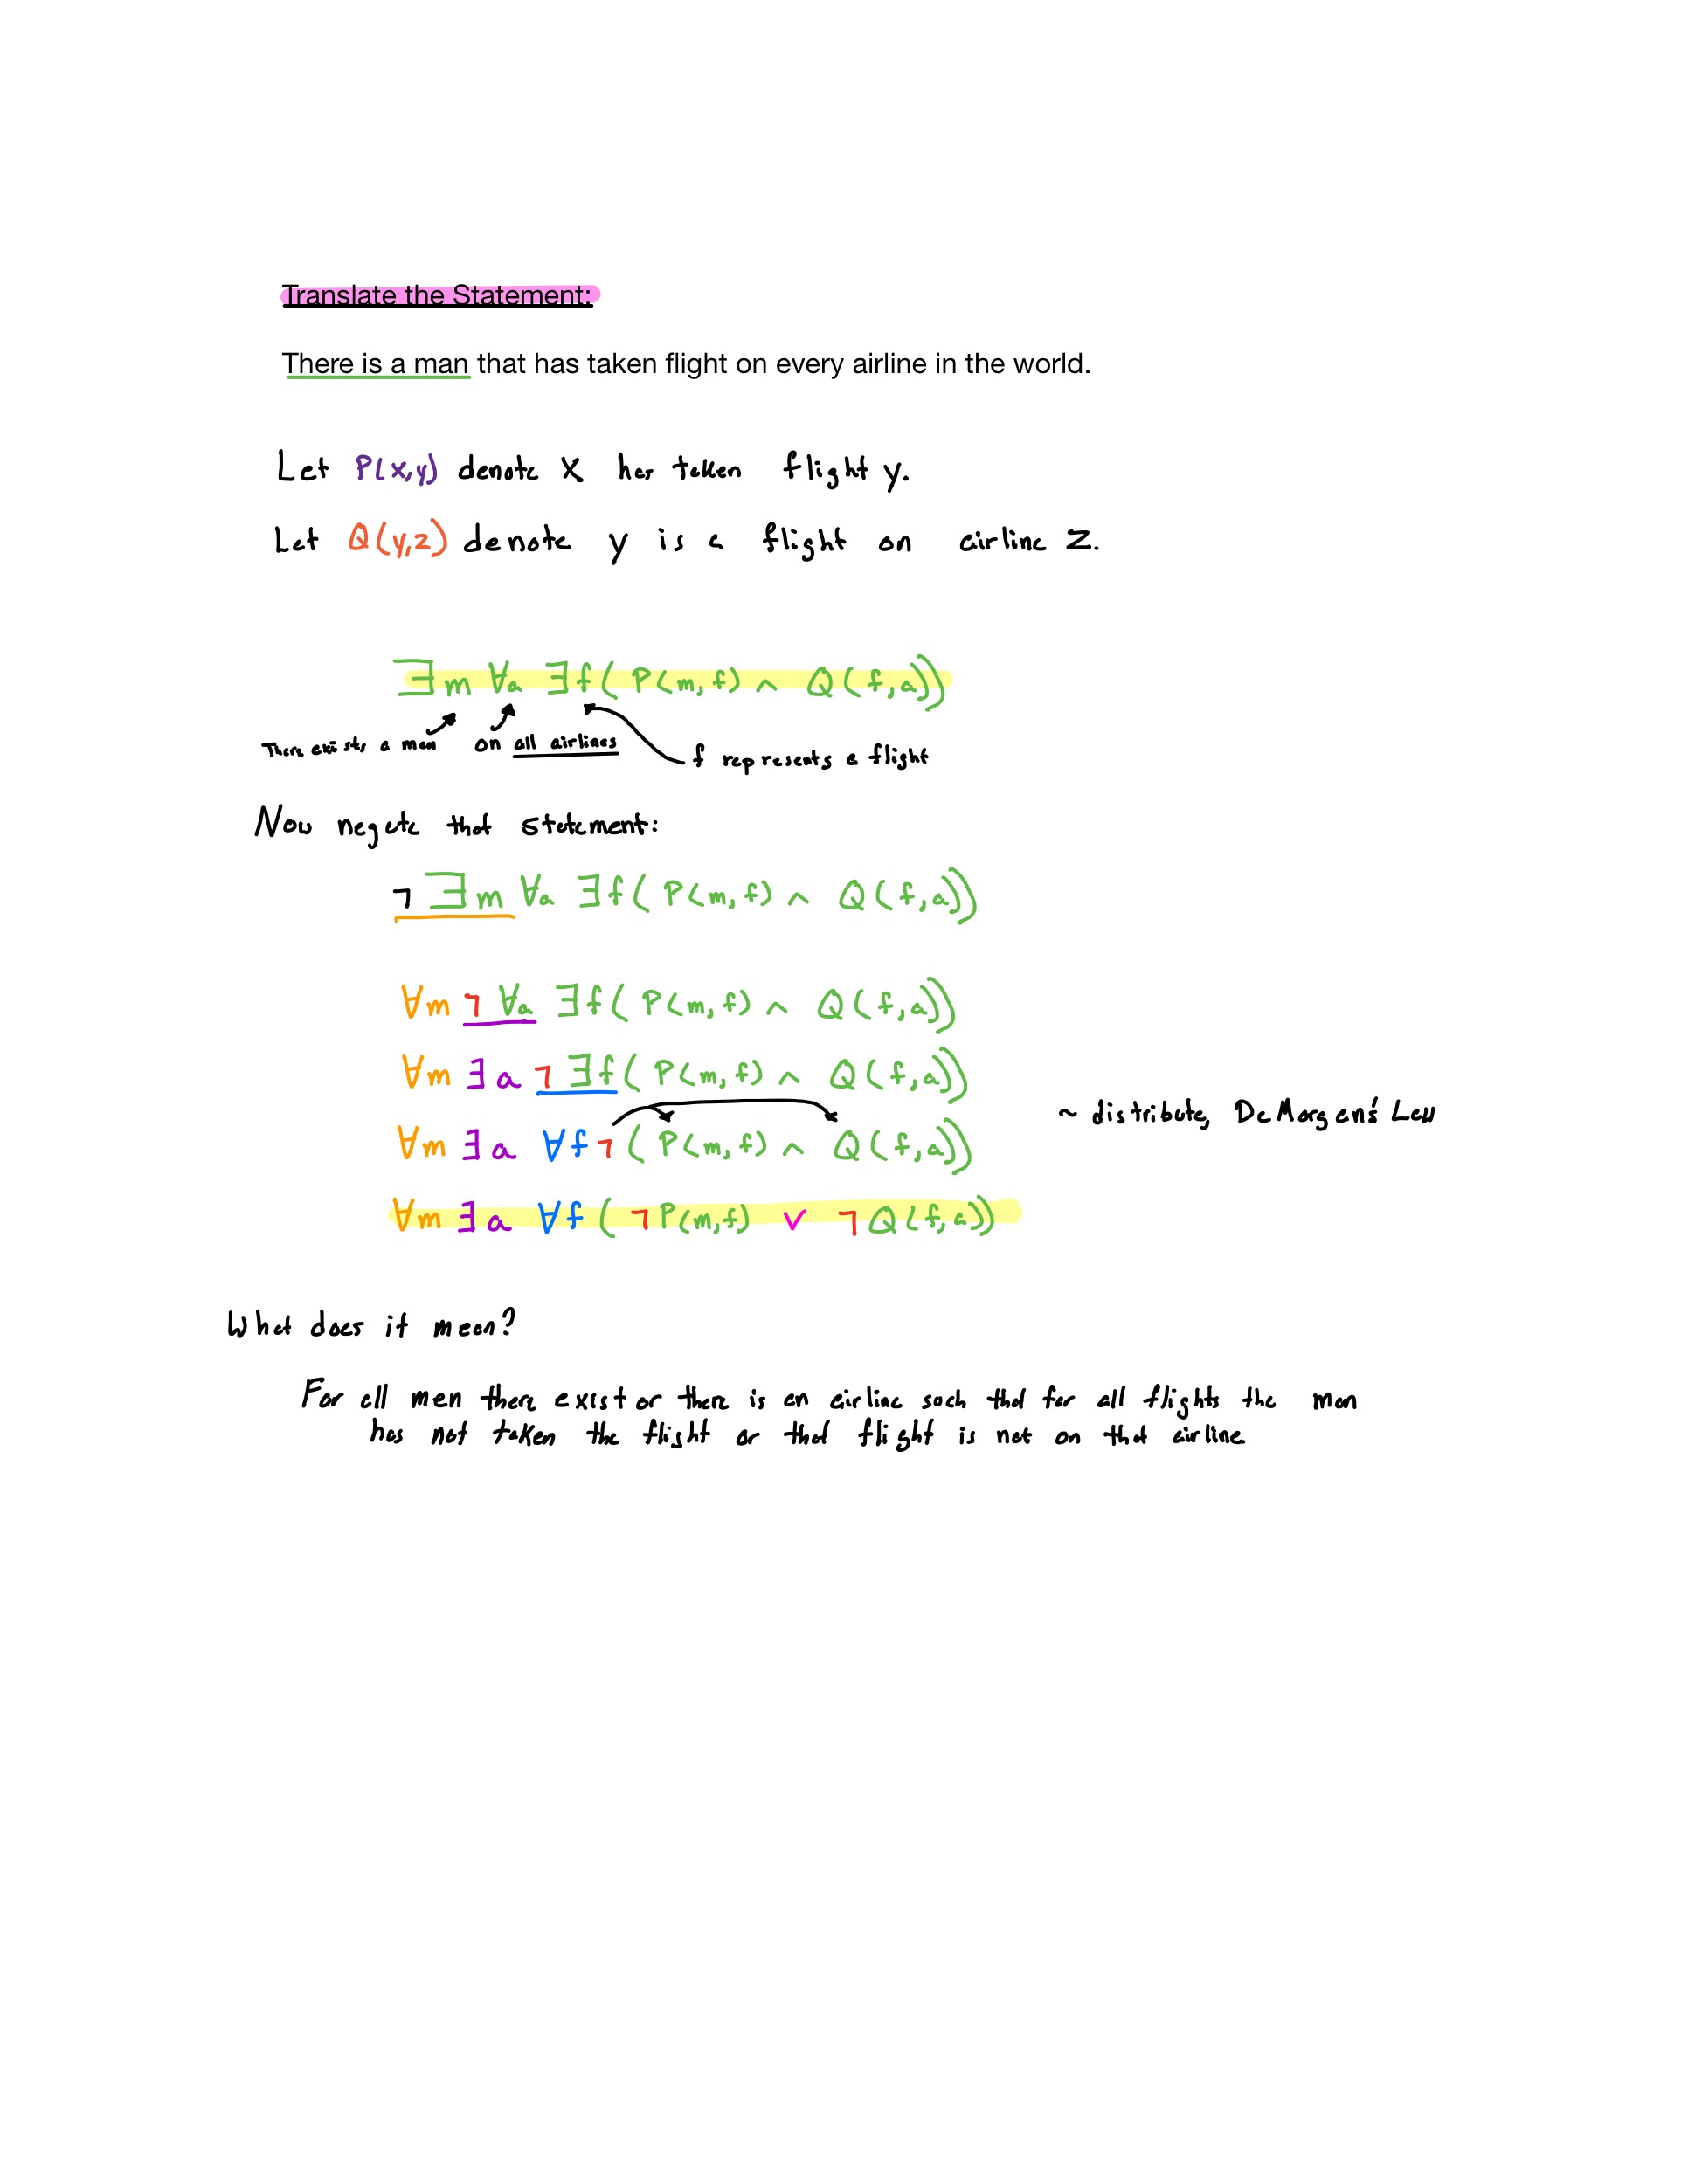 Translate the Statement:
There is a man that has taken flight on every airline in the world.
Let P(x,y) denote X has taken flight y.
Let Q(y,z) denote y is a flight on airline Z.
∃m ∀a ∃f( P(m,f) ∧ Q(f,a))
There exists a man on all airlines f represents a flight
Now negate that statement:
¬∃m ∀a ∃f( P(m,f) ∧ Q(f,a))
∀m ¬∀a ∃f( P(m,f) ∧ Q(f,a))
∀m ∃a ¬∃f( P(m,f) ∧ Q(f,a))
~ distribute, DeMorgan's Law
∀m ∃a ∀f¬( P(m,f) ∧ Q(f,a))
∀m ∃a ∀f ( ¬P(m,f) ∨ ¬Q(f,a))
What does it mean?
For all men there exist or there is an airline such that for all flights the man
has not taken the flight or that flight is not on that airline.